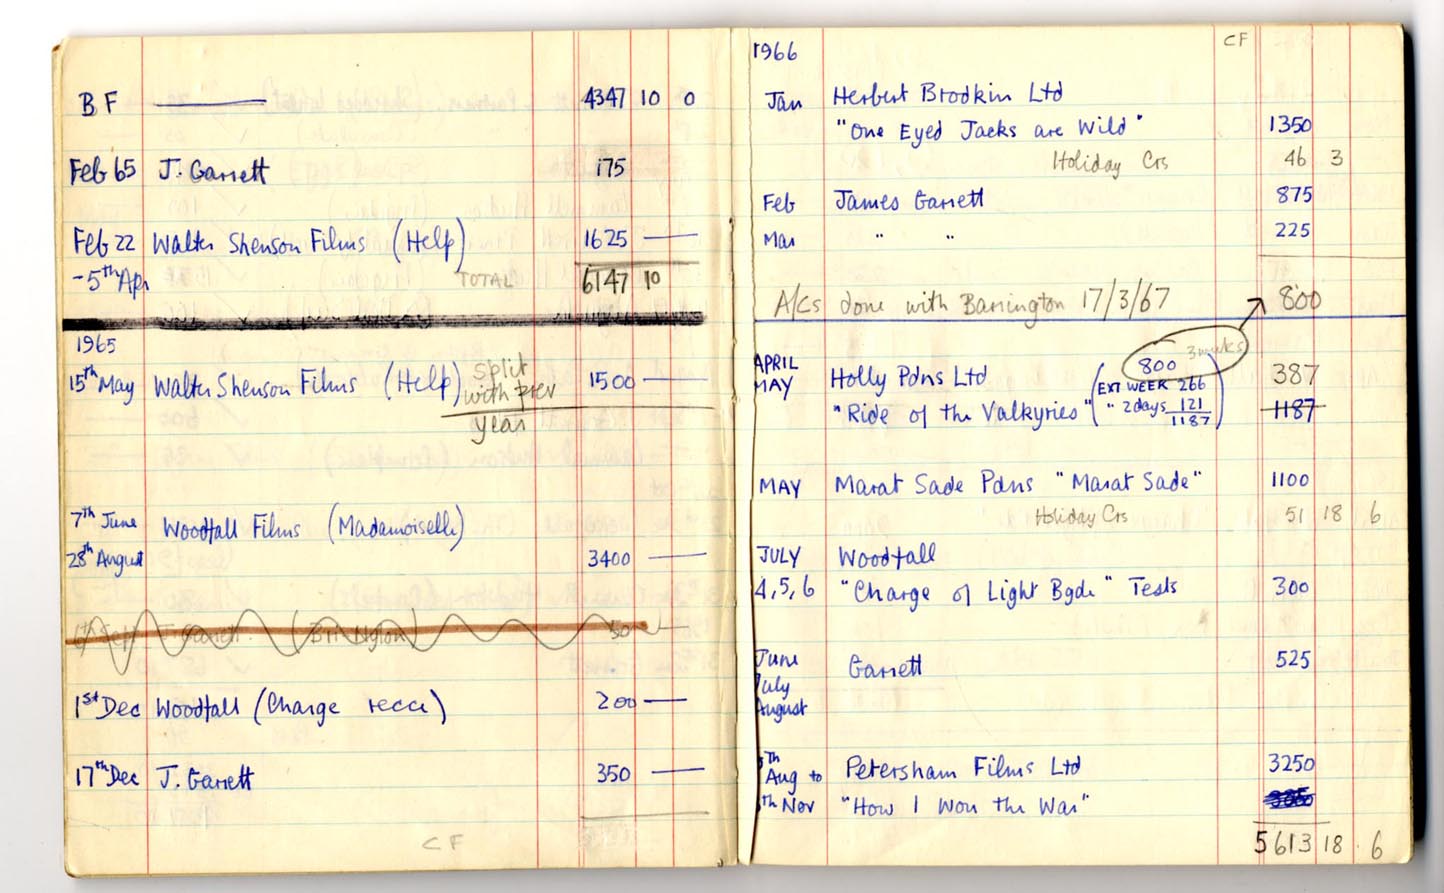 B F 4347 10 0
Feb 65 J. Garrett 175
Feb 22 Walter Shenson Films (Help) 1625 —
- 5th Apr TOTAL 6147 10
1965
15th May Walter Shenson Films (Help) Split with prev year 1500 —
7th June Woodfall Films (Madamoiselle)
28th August 3400 —
6th Sep J. Garrett (Bri 50
1st Dec Woodfall (Charge recce) 200 —
17th Dec J. Garrett 350 —
C F
1966 CF
Jan Herbert Brodkin Ltd
"One Eyed Jacks are Wild" 1350
Holiday Crs 46 3
Feb James Garrett 875
Mar " " 225
A/cs done with Barrington 17/3/67 800
800 3 weeks
APRIL
MAY Holly Pdns Ltd (EXT WEEK 266 387
"Ride of the Valkyries" " 2 days 121 1187) 1187
MAY Marat Sade Pdns "Marat Sade" 1100
Holiday Crs 51 18 6
JULY Woodfall
4, 5, 6 "Charge of Light Bgde" Tests 300
June Garrett 525
July
August
th Aug to Petersham Films Ltd 3250
th Nov "How I Won the War"
5613 18 6